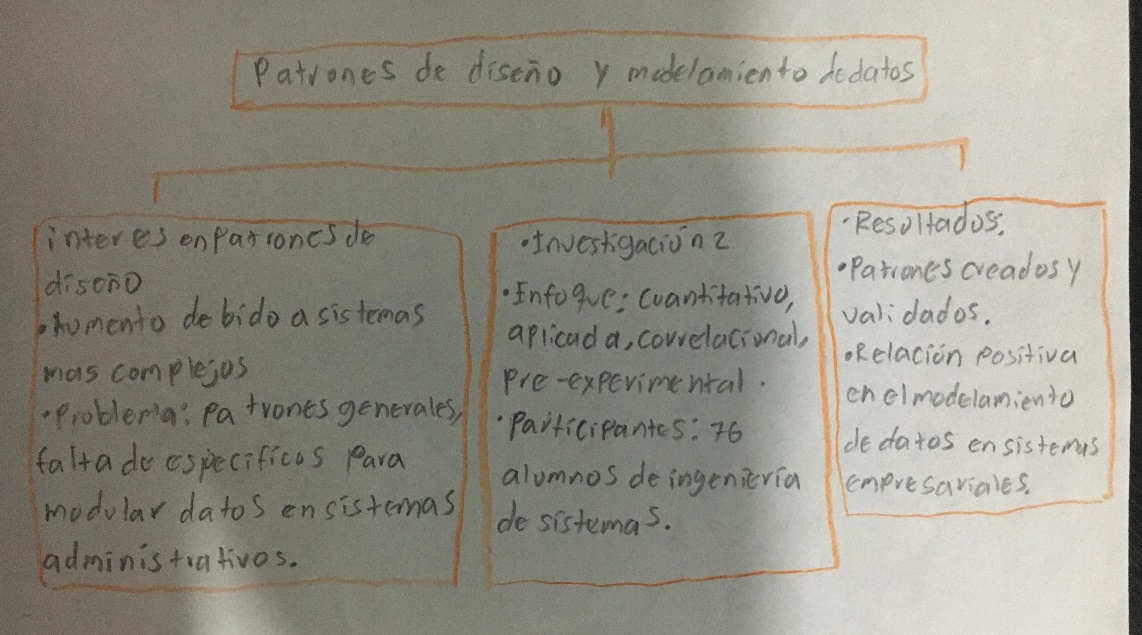 Patrones de diseño y modelamiento de datos
interes en Patrones de
diseño
•Aumento debido a sistemas
mas complejos
•Problema: patrones generales,
falta de especificos para
modular datos en sistemas
administrativos.
•Investigación 2
•Enfoque: cuantitativo,
aplicada, correlacional,
pre-experimental.
•Participantes: 76
alumnos de ingenieria
de sistemas.
•Resultados:
•Patrones creados y
validados.
•Relación positiva
en el modelamiento
de datos en sistemas
empresariales.